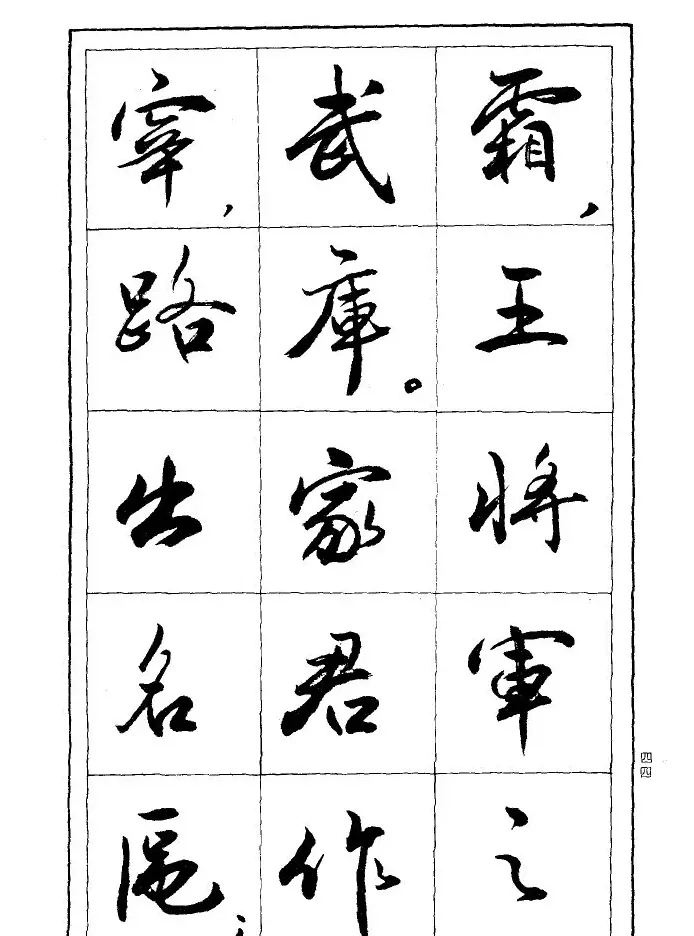 霜，王將軍之
武庫。家君作
宰，路出名區；
四四